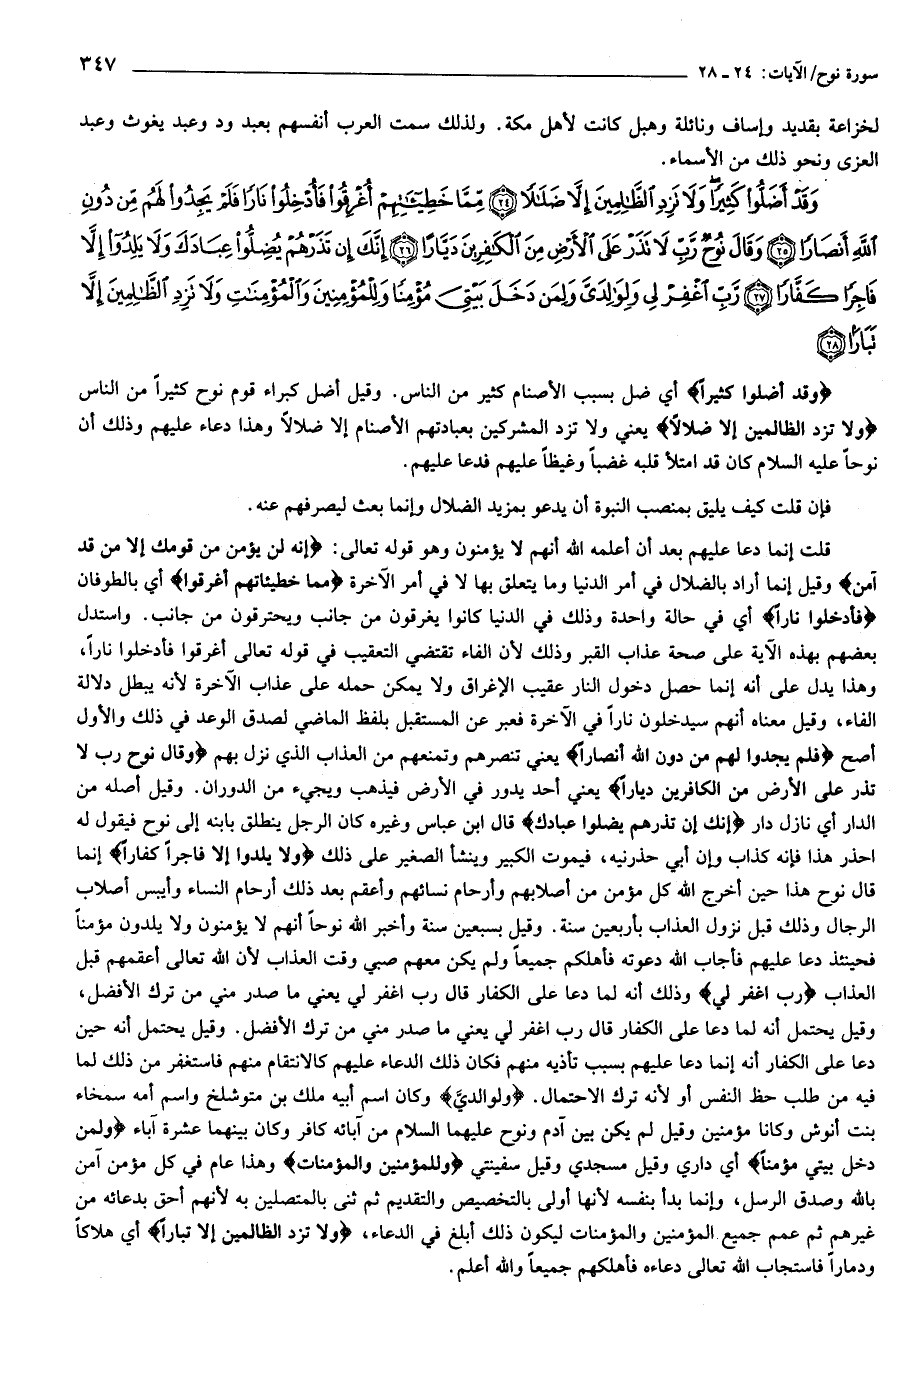 سورة نوح/ الآيات: ٢٤ ـ ٢٨ ٣٤٧
لخزاعة بقديد وإساف ونائلة وهبل كانت لأهل مكة. ولذلك سمت العرب أنفسهم بعبد ود وعبد يغوث وعبد
العزى ونحو ذلك من الأسماء.
وَقَدْ أَضَلُّوا۟ كَثِيرًا ۖ وَلَا تَزِدِ ٱلظَّـٰلِمِينَ إِلَّا ضَلَـٰلًا ﴿٢٤﴾ مِّمَّا خَطِيٓـَٔـٰتِهِمْ أُغْرِقُوا۟ فَأُدْخِلُوا۟ نَارًا فَلَمْ يَجِدُوا۟ لَهُم مِّن دُونِ
ٱللَّهِ أَنصَارًا ﴿٢٥﴾ وَقَالَ نُوحٌ رَّبِّ لَا تَذَرْ عَلَى ٱلْأَرْضِ مِنَ ٱلْكَـٰفِرِينَ دَيَّارًا ﴿٢٦﴾ إِنَّكَ إِن تَذَرْهُمْ يُضِلُّوا۟ عِبَادَكَ وَلَا يَلِدُوٓا۟ إِلَّا
فَاجِرًا كَفَّارًا ﴿٢٧﴾ رَّبِّ ٱغْفِرْ لِى وَلِوَٰلِدَىَّ وَلِمَن دَخَلَ بَيْتِىَ مُؤْمِنًا وَلِلْمُؤْمِنِينَ وَٱلْمُؤْمِنَـٰتِ وَلَا تَزِدِ ٱلظَّـٰلِمِينَ إِلَّا
تَبَارًا ﴿٢٨﴾
﴿وقد أضلوا كثيراً﴾ أي ضل بسبب الأصنام كثير من الناس. وقيل أضل كبراء قوم نوح كثيراً من الناس
﴿ولا تزد الظالمين إلا ضلالاً﴾ يعني ولا تزد المشركين بعبادتهم الأصنام إلا ضلالاً وهذا دعاء عليهم وذلك أن
نوحاً عليه السلام كان قد امتلأ قلبه غضباً وغيظاً عليهم فدعا عليهم.
فإن قلت كيف يليق بمنصب النبوة أن يدعو بمزيد الضلال وإنما بعث ليصرفهم عنه.
قلت إنما دعا عليهم بعد أن أعلمه الله أنهم لا يؤمنون وهو قوله تعالى: ﴿إنه لن يؤمن من قومك إلا من قد
آمن﴾ وقيل إنما أراد بالضلال في أمر الدنيا وما يتعلق بها لا في أمر الآخرة ﴿مما خطيئاتهم أغرقوا﴾ أي بالطوفان
﴿فأدخلوا ناراً﴾ أي في حالة واحدة وذلك في الدنيا كانوا يغرقون من جانب ويحترقون من جانب. واستدل
بعضهم بهذه الآية على صحة عذاب القبر وذلك لأن الفاء تقتضي التعقيب في قوله تعالى أغرقوا فأدخلوا ناراً،
وهذا يدل على أنه إنما حصل دخول النار عقيب الإغراق ولا يمكن حمله على عذاب الآخرة لأنه يبطل دلالة
الفاء، وقيل معناه أنهم سيدخلون ناراً في الآخرة فعبر عن المستقبل بلفظ الماضي لصدق الوعد في ذلك والأول
أصح ﴿فلم يجدوا لهم من دون الله أنصاراً﴾ يعني تنصرهم وتمنعهم من العذاب الذي نزل بهم ﴿وقال نوح رب لا
تذر على الأرض من الكافرين دياراً﴾ يعني أحد يدور في الأرض فيذهب ويجيء من الدوران. وقيل أصله من
الدار أي نازل دار ﴿إنك إن تذرهم يضلوا عبادك﴾ قال ابن عباس وغيره كان الرجل ينطلق بابنه إلى نوح فيقول له
احذر هذا فإنه كذاب وإن أبي حذرنيه، فيموت الكبير وينشأ الصغير على ذلك ﴿ولا يلدوا إلا فاجراً كفاراً﴾ إنما
قال نوح هذا حين أخرج الله كل مؤمن من أصلابهم وأرحام نسائهم وأعقم بعد ذلك أرحام النساء وأيبس أصلاب
الرجال وذلك قبل نزول العذاب بأربعين سنة. وقيل بسبعين سنة وأخبر الله نوحاً أنهم لا يؤمنون ولا يلدون مؤمناً
فحينئذ دعا عليهم فأجاب الله دعوته فأهلكم جميعاً ولم يكن معهم صبي وقت العذاب لأن الله تعالى أعقمهم قبل
العذاب ﴿رب اغفر لي﴾ وذلك أنه لما دعا على الكفار قال رب اغفر لي يعني ما صدر مني من ترك الأفضل،
وقيل يحتمل أنه لما دعا على الكفار قال رب اغفر لي يعني ما صدر مني من ترك الأفضل. وقيل يحتمل أنه حين
دعا على الكفار أنه إنما دعا عليهم بسبب تأذيه منهم فكان ذلك الدعاء عليهم كالانتقام منهم فاستغفر من ذلك لما
فيه من طلب حظ النفس أو لأنه ترك الاحتمال. ﴿ولوالديَّ﴾ وكان اسم أبيه ملك بن متوشلخ واسم أمه سمخاء
بنت أنوش وكانا مؤمنين وقيل لم يكن بين آدم ونوح عليهما السلام من آبائه كافر وكان بينهما عشرة آباء ﴿ولمن
دخل بيتي مؤمناً﴾ أي داري وقيل مسجدي وقيل سفينتي ﴿وللمؤمنين والمؤمنات﴾ وهذا عام في كل مؤمن آمن
بالله وصدق الرسل، وإنما بدأ بنفسه لأنها أولى بالتخصيص والتقديم ثم ثنى بالمتصلين به لأنهم أحق بدعائه من
غيرهم ثم عمم جميع المؤمنين والمؤمنات ليكون ذلك أبلغ في الدعاء، ﴿ولا تزد الظالمين إلا تباراً﴾ أي هلاكاً
ودماراً فاستجاب الله تعالى دعاءه فأهلكهم جميعاً والله أعلم.